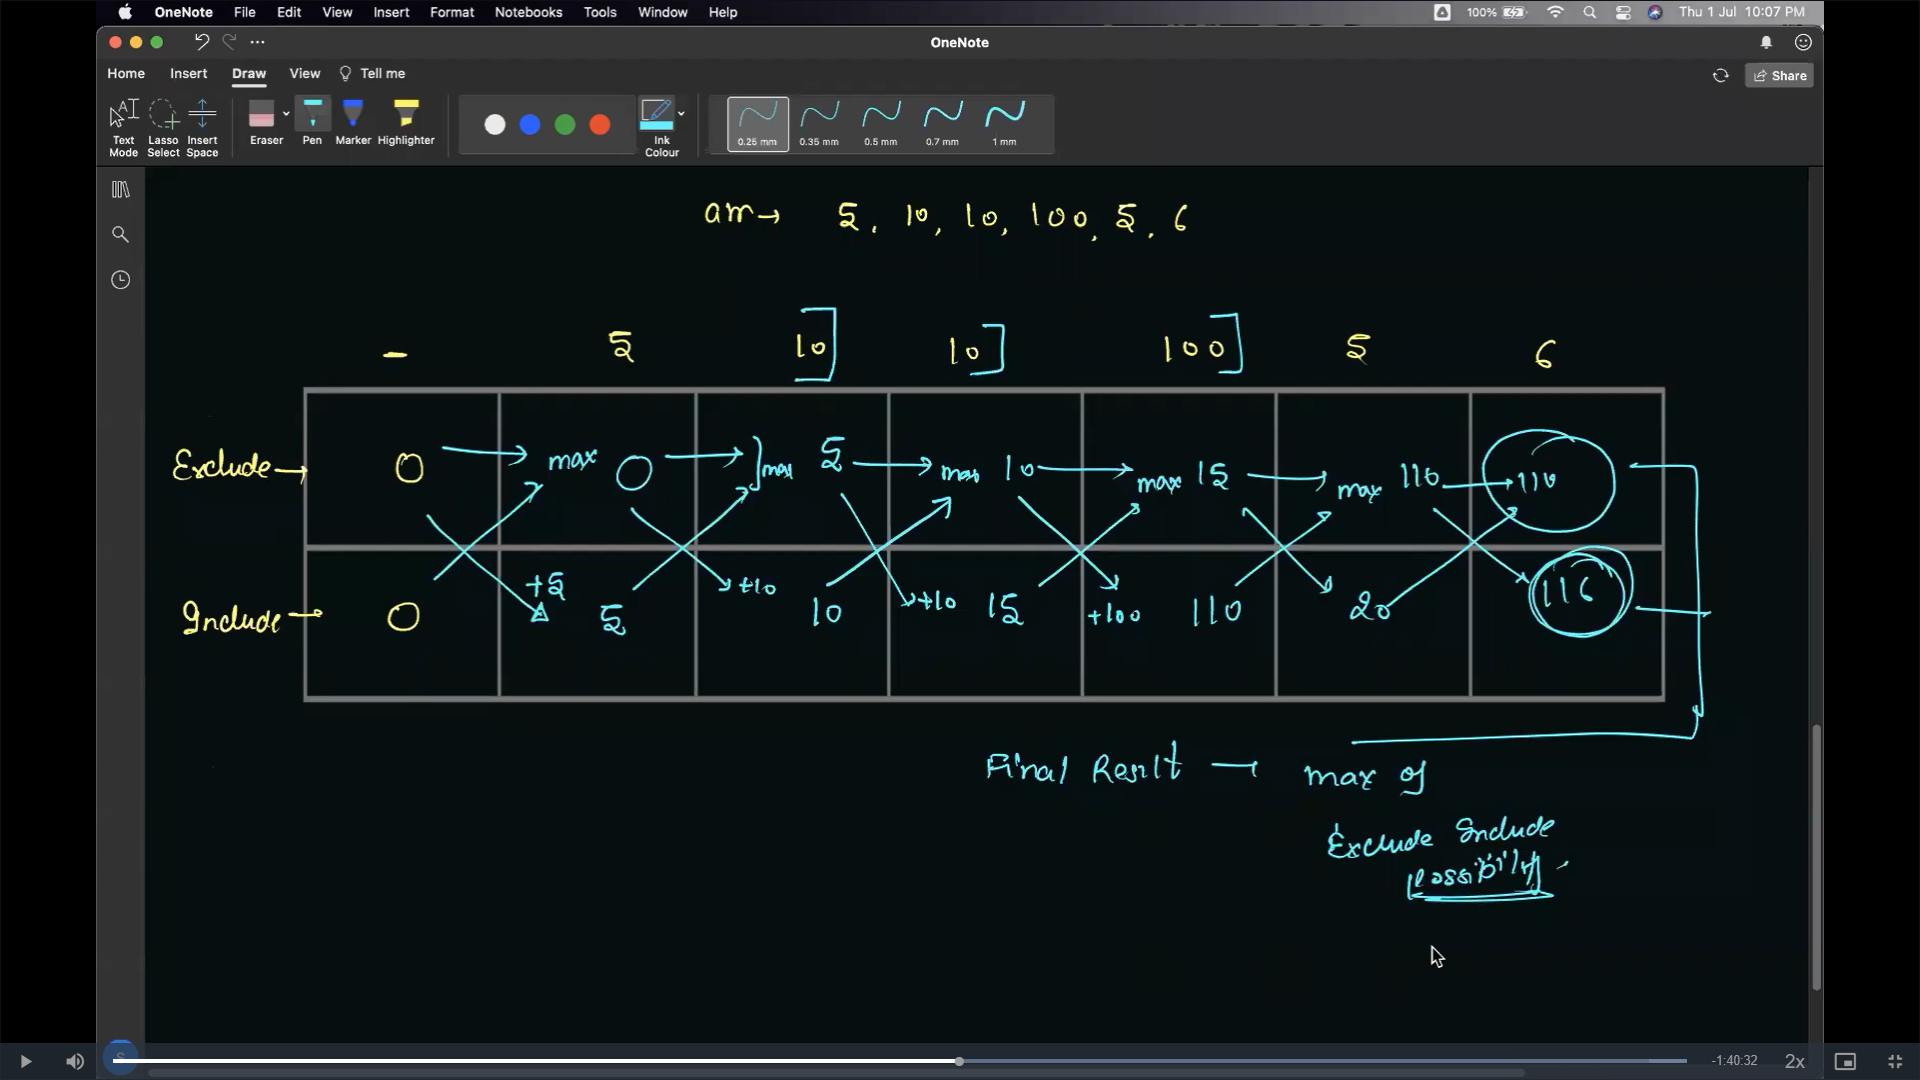 OneNote File Edit View Insert Format Notebooks Tools Window Help 100% Thu 1 Jul 10:07 PM
OneNote
Home Insert Draw View Tell me Share
Text Mode Lasso Select Insert Space Eraser Pen Marker Highlighter Ink Colour 0.25 mm 0.35 mm 0.5 mm 0.7 mm 1 mm
arr→ 5, 10, 10, 100, 5, 6
- 5 10] 10] 100] 5 6
Exclude→ 0 max 0 max 5 max 10 max 15 max 110 110
Include→ 0 +5 5 +10 10 +10 15 +100 110 20 116
Final Result → max of
Exclude Include
Possibility
S -1:40:32 2x